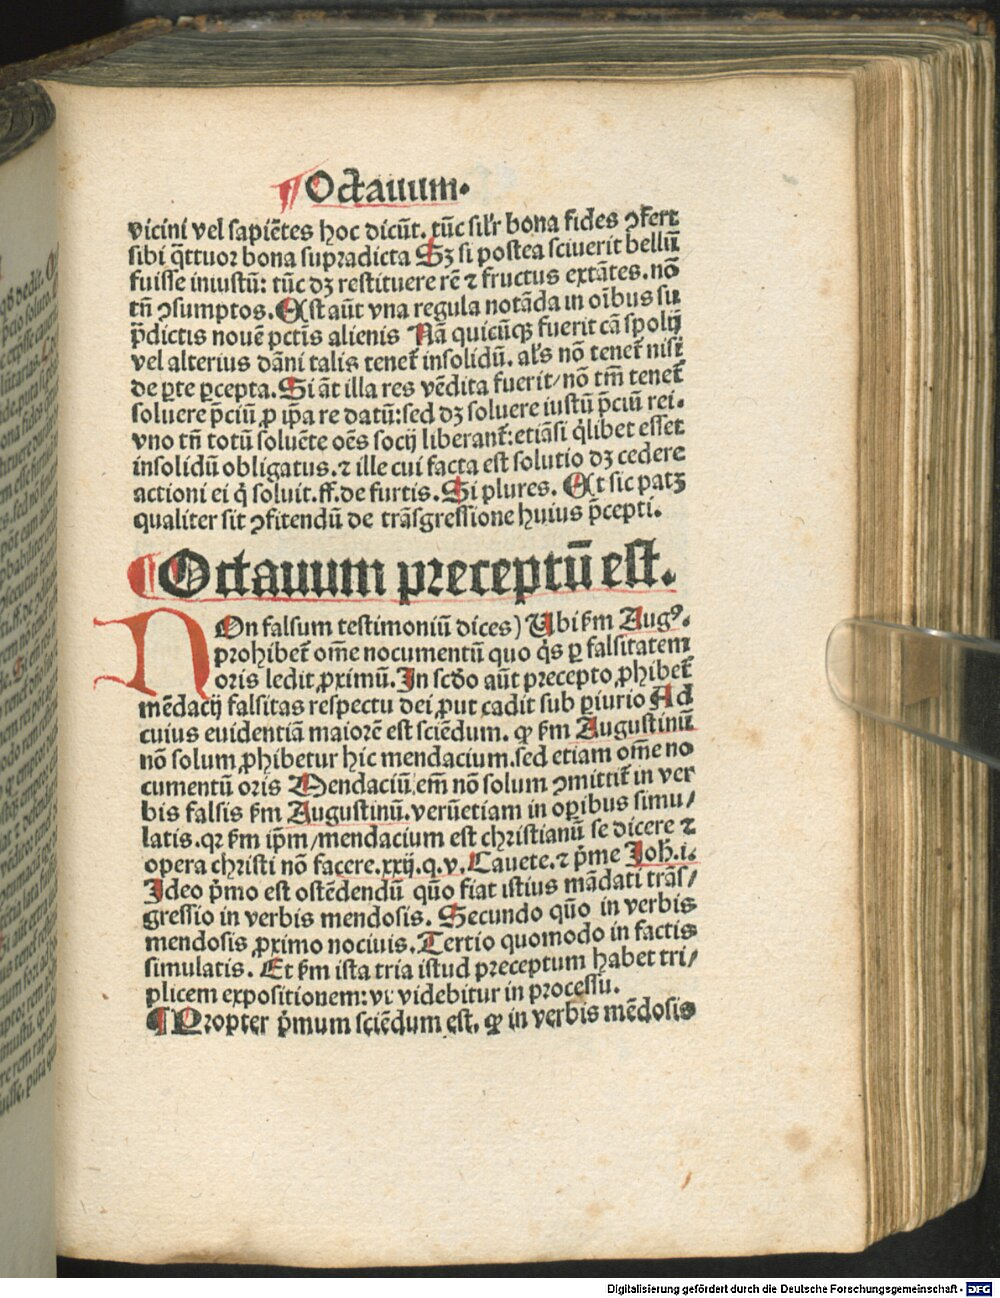 ¶Octauum.
vicini vel sapiẽtes hoc dicũt. tũc sil'r bona fides ꝯfert
sibi q̃ttuor bona supradicta Sꝫ si postea sciuerit bellũ
fuisse iniustũ: tũc dꝫ restituere rẽ ⁊ fructus extãtes. nõ
tñ ꝯsumptos. Est aũt vna regula notãda in oĩbus su
p̃dictis nouẽ pctĩs alienis Nã quicũqꝫ fuerit cã spolij
vel alterius dãni talis tenet̃ insolidũ. al's nõ tenet̃ nisi
de ꝑte ꝑcepta. Si ãt illa res vẽdita fuerit/ nõ tm̃ tenet̃
soluere p̃ciũ ꝓ ip̃a re datũ: sed dꝫ soluere iustũ p̃ciũ rei.
vno tñ totũ soluẽte oẽs socij liberant̃: etiãsi q̃libet esset
insolidũ obligatus. ⁊ ille cui facta est solutio dꝫ cedere
actioni ei q̇ soluit. ff. de furtis. Si plures. Et sic patꝫ
qualiter sit ꝯfitendũ de trãsgressione huius p̃cepti.
¶Octauum preceptũ est.
NOn falsum testimoniũ dices) Ubi fm̃ Augꝰ.
prohibet̃ om̃e nocumentũ quo q̇s ꝑ falsitatem
oris ledit ꝓximũ. In scd̃o aũt precepto ꝓhibet̃
mẽdacij falsitas respectu dei ꝓut cadit sub ꝑiurio Ad
cuius euidentiã maiorẽ est sciẽdum. ꝙ fm̃ Augustinũ
nõ solum ꝓhibetur hic mendacium. sed etiam om̃e no
cumentũ oris Mendaciũ em̃ nõ solum ꝯmittit̃ in ver
bis falsis fm̃ Augustinũ. verũetiam in oꝑibus simu/
latis. qꝛ fm̃ ip̃m/ mendacium est christianũ se dicere ⁊
opera christi nõ facere. xxij. q. v. Cauete. ⁊ p̃me Joh. i.
Ideo p̃mo est ostẽdendũ quõ fiat istius mãdati trãs/
gressio in verbis mendosis. Secundo quõ in verbis
mendosis ꝓximo nociuis. Tertio quomodo in factis
simulatis. Et fm̃ ista tria istud preceptum habet tri/
plicem expositionem: vt videbitur in processu.
¶Propter p̃mum sciẽdum est. ꝙ in verbis mẽdosis
Digitalisierung gefördert durch die Deutsche Forschungsgemeinschaft - DFG